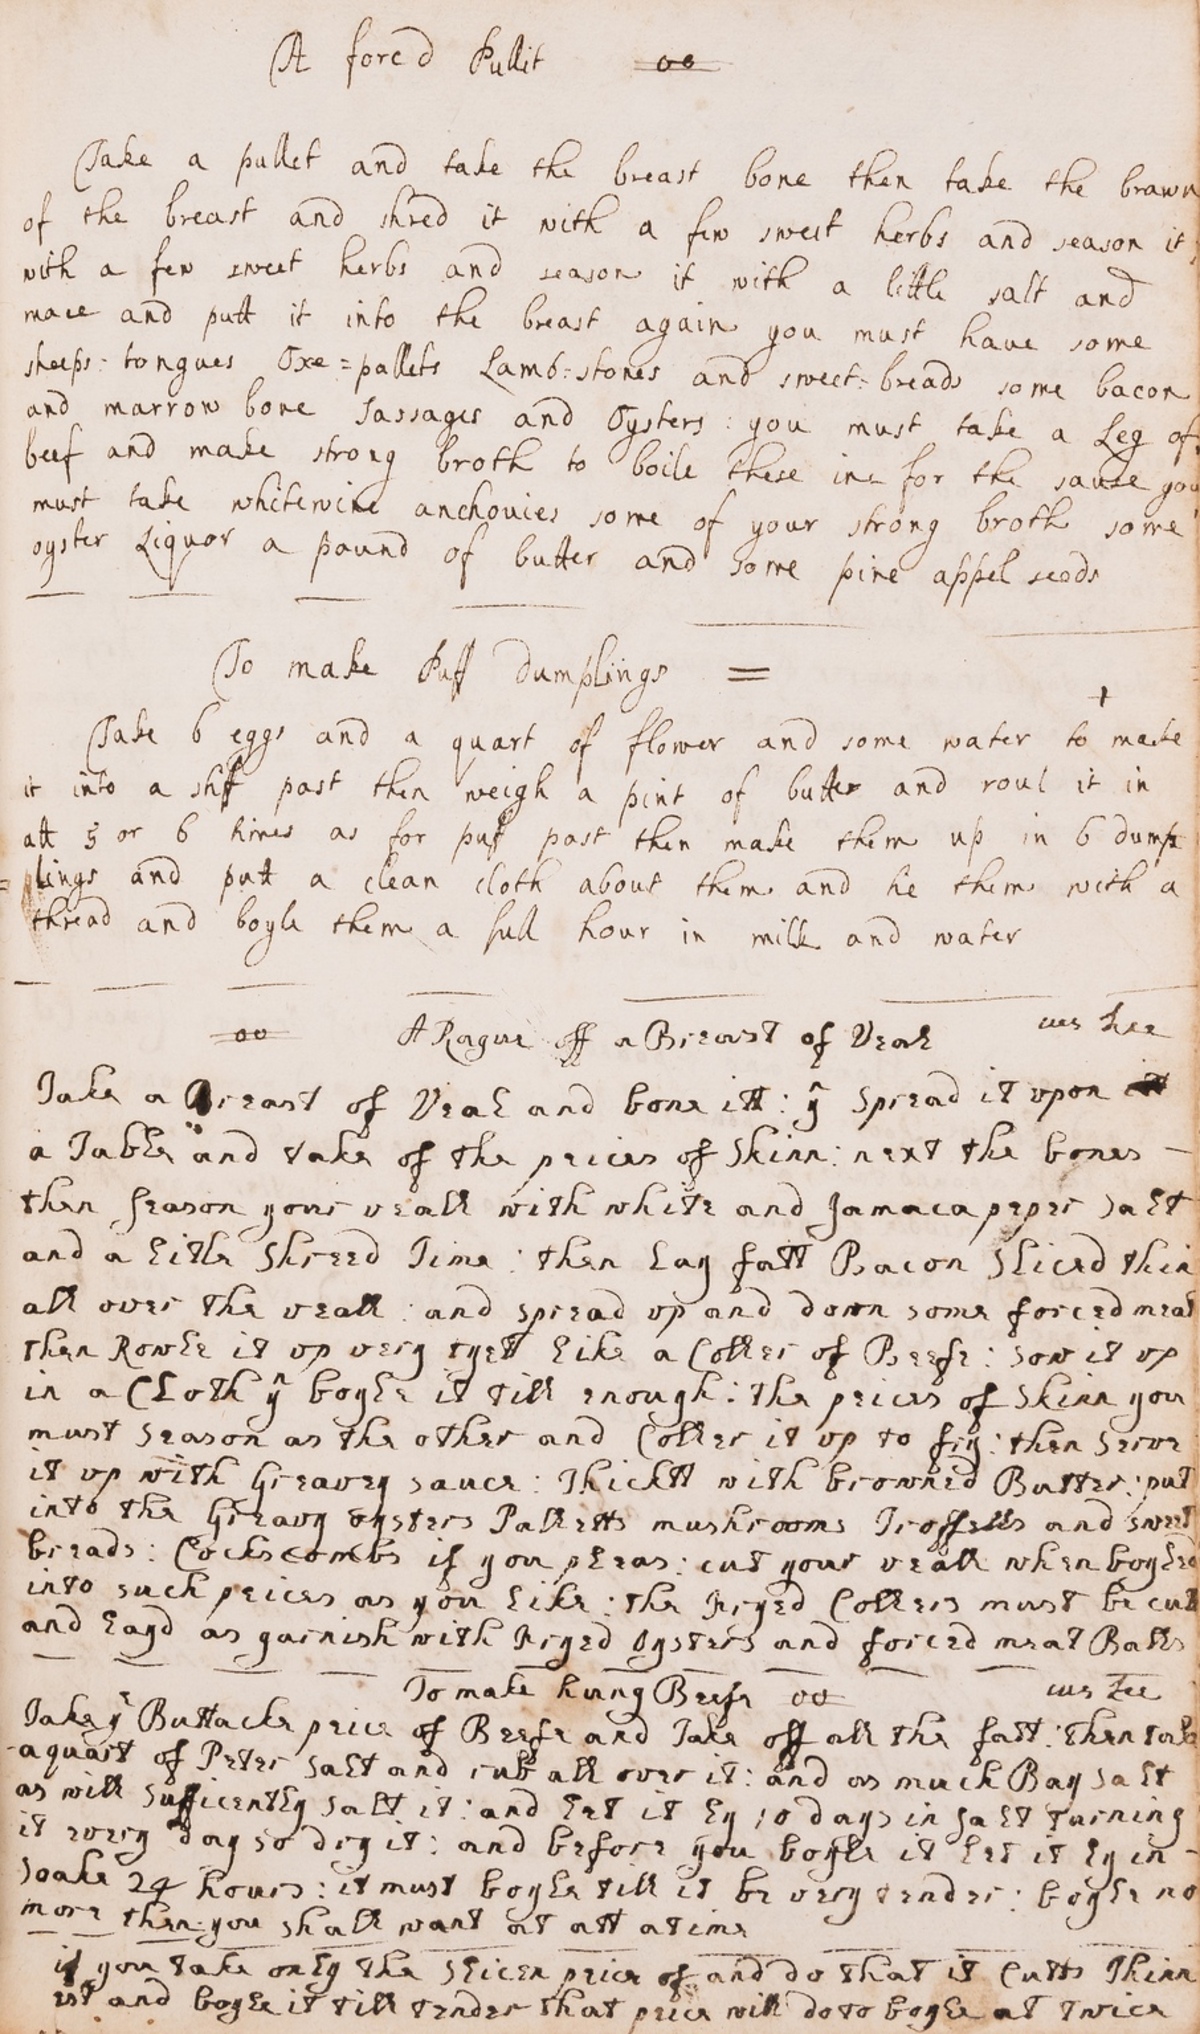 A forc'd Pullit oo
Take a pullet and take the breast bone then take the brawn
of the breast and shred it with a few sweet herbs and season it
with a few sweet herbs and season it with a little salt and
mace and putt it into the breast again you must have some
sheeps=tongues Oxe=pallets Lamb=stones and sweet=breads some bacon
and marrow bone sassages and Oysters : you must take a Leg of
beef and make strong broth to boile these in for the sause you
must take whitewine anchovies some of your strong broth some
oyster Liquor a pound of butter and some pine appel seeds
To make Puff dumplings =
+
Take 6 eggs and a quart of flower and some water to make
it into a stiff past then weigh a pint of butter and roul it in
att 5 or 6 times as for puf past then make them up in 6 dump
=lings and putt a clean cloth about them and tie them with a
thread and boyle them a full hour in milk and water
oo A Rague off a Breast of Veal
Take a Breast of Veal and bone itt : yn spread it upon
a Table and take of the peices of Skinn : next the bones -
then season your veall with white and Jamaca peper salt
and a litle Shreed Time : then Lay fatt Bacon Sliced thin
all over the veall : and spread up and down some forced meat
then Rowle it up very tyet like a Coller of Beefe : sow it up
in a Cloth yn boyle it till enough : the peices of Skinn you
must season as the other and Coller it up to fry : then serve
it up with Greavey sauce : Thicktt with browned Butter : put
into the Greavy oysters Palletts mushrooms Troffells and sweet
breads : Cockscombs if you pleas : cut your veall when boyled
into such peices as you like : the fryed Collers must be cutt
and layd as garnish with fryed Oysters and forced meat Balls
To make hung Beefe oo
Take ye Buttacke peice of Beefe and Take off all the fatt : then take
a quart of Peter salt and rub all over it : and as much Bay salt
as will sufficently salt it : and let it ly 10 days in salt turning
it every day so dry it : and before you boyle it let it ly in -
soake 24 hours : it must boyle till it be very tender : boyle no
more then you shall want at att a time
if you take only the slicen peice of and do that it Cutts Thinn
est and boyle it till tender that peice will do to boyle at twice